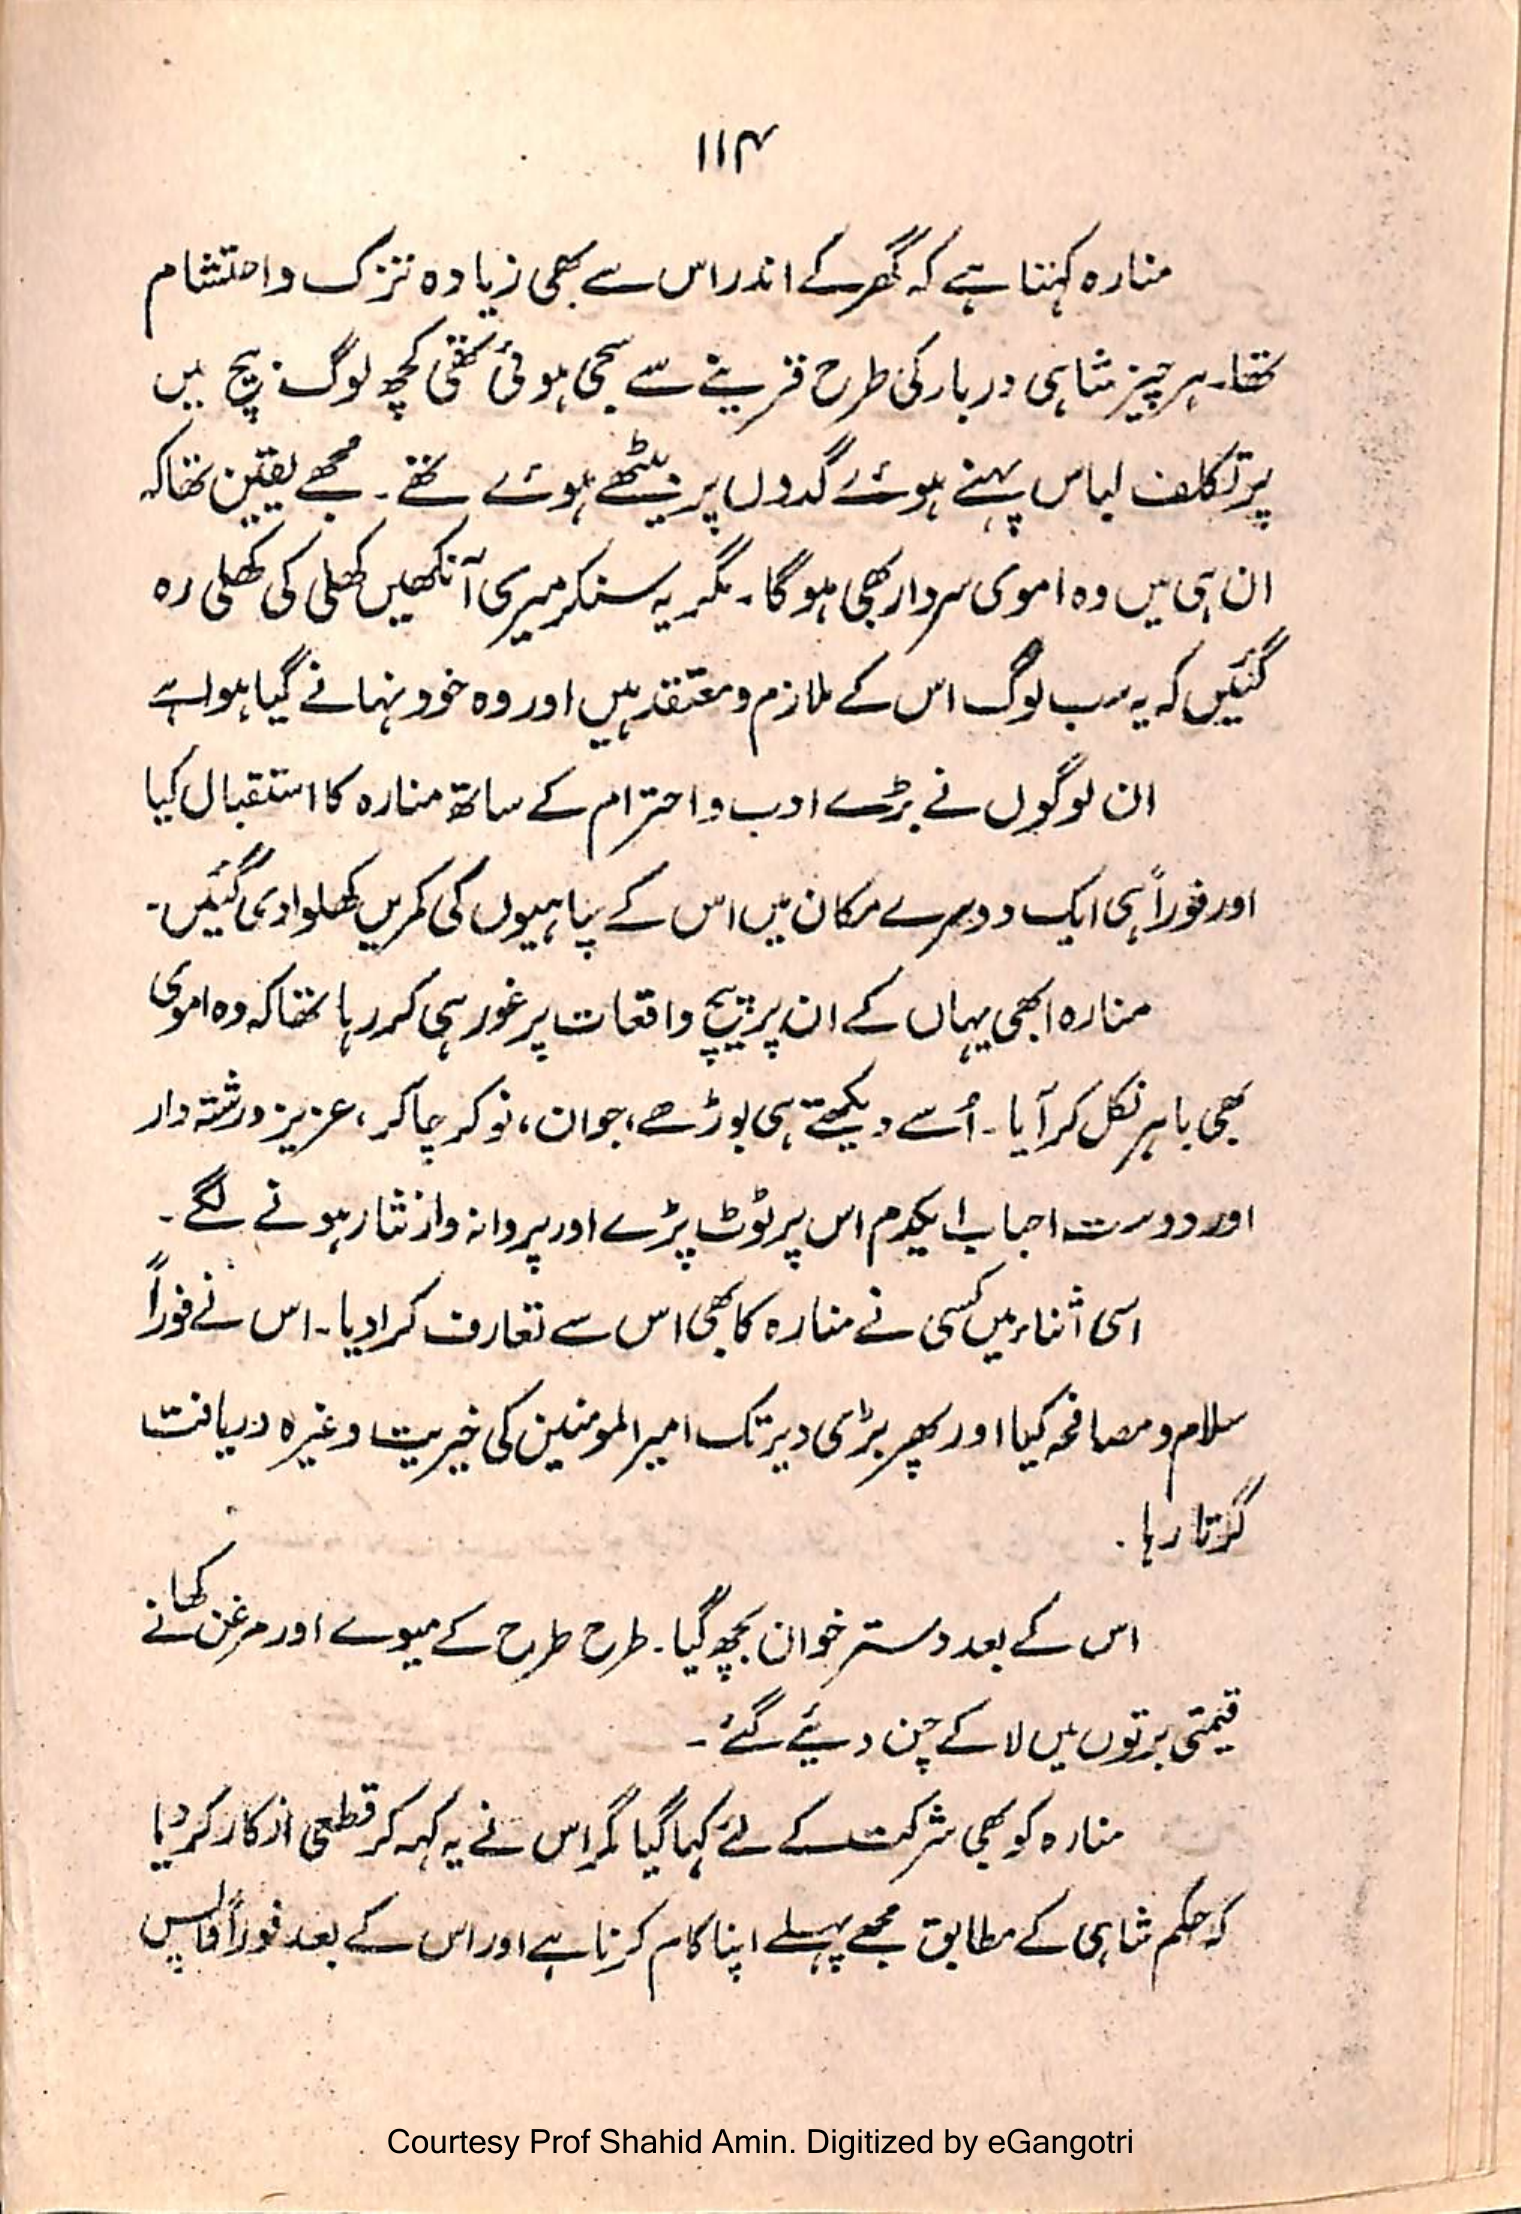 ۱۱۴
منارہ کہتا ہے کہ گھر کے اندر اس سے بھی زیادہ تزک و احتشام
تھا۔ ہر چیز شاہی دربار کی طرح قرینے سے سجی ہوئی تھی کچھ لوگ بیچ میں
پرتکلف لباس پہنے ہوئے گدوں پر بیٹھے ہوئے تھے۔ مجھے یقین تھا کہ
ان ہی میں وہ اموی سردار بھی ہوگا۔ مگر یہ سنکر میری آنکھیں کھلی کی کھلی رہ
گئیں کہ یہ سب لوگ اس کے ملازم و معتقد ہیں اور وہ خود نہانے گیا ہوا ہے
ان لوگوں نے بڑے ادب و احترام کے ساتھ منارہ کا استقبال کیا
اور فوراً ہی ایک دوسرے مکان میں اس کے سپاہیوں کی کمریں کھلوا دی گئیں۔
منارہ ابھی یہاں کے ان پرپیچ واقعات پر غور ہی کر رہا تھا کہ وہ اموی
بھی باہر نکل کر آیا۔ اُسے دیکھتے ہی بوڑھے، جوان، نوکر چاکر، عزیز و رشتہ دار
اور دوست احباب ایکدم اس پر ٹوٹ پڑے اور پروانہ وار نثار ہونے لگے۔
اسی اثناء میں کسی نے منارہ کا بھی اس سے تعارف کرا دیا۔ اس نے فوراً
سلام و مصافحہ کیا اور پھر بڑی دیر تک امیر المومنین کی خیریت وغیرہ دریافت
کرتا رہا۔
اس کے بعد دسترخوان بچھ گیا۔ طرح طرح کے میوے اور مرغن کھانے
قیمتی برتوں میں لا کے چن دیئے گئے۔
منارہ کو بھی شرکت کے لئے کہا گیا مگر اس نے یہ کہہ کر قطعی انکار کر دیا
کہ حکم شاہی کے مطابق مجھے پہلے اپنا کام کرنا ہے اور اس کے بعد فوراً واپس
Courtesy Prof Shahid Amin. Digitized by eGangotri